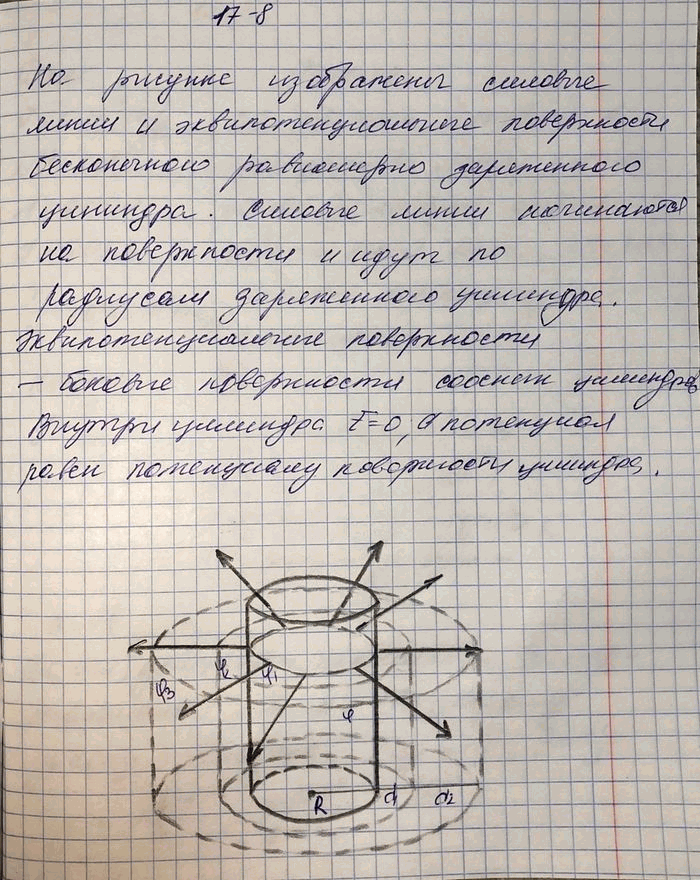 17-8
На рисунке изображены силовые
линии и эквипотенциальные поверхности
бесконечного равномерно заряженного
цилиндра. Силовые линии начинаются
на поверхности и идут по
радиусам заряженного цилиндра.
Эквипотенциальные поверхности
– боковые поверхности соосных цилиндров
Внутри цилиндра E=0, а потенциал
равен потенциалу поверхности цилиндра.
φ3 φ2 φ1
φ
R d1 d2